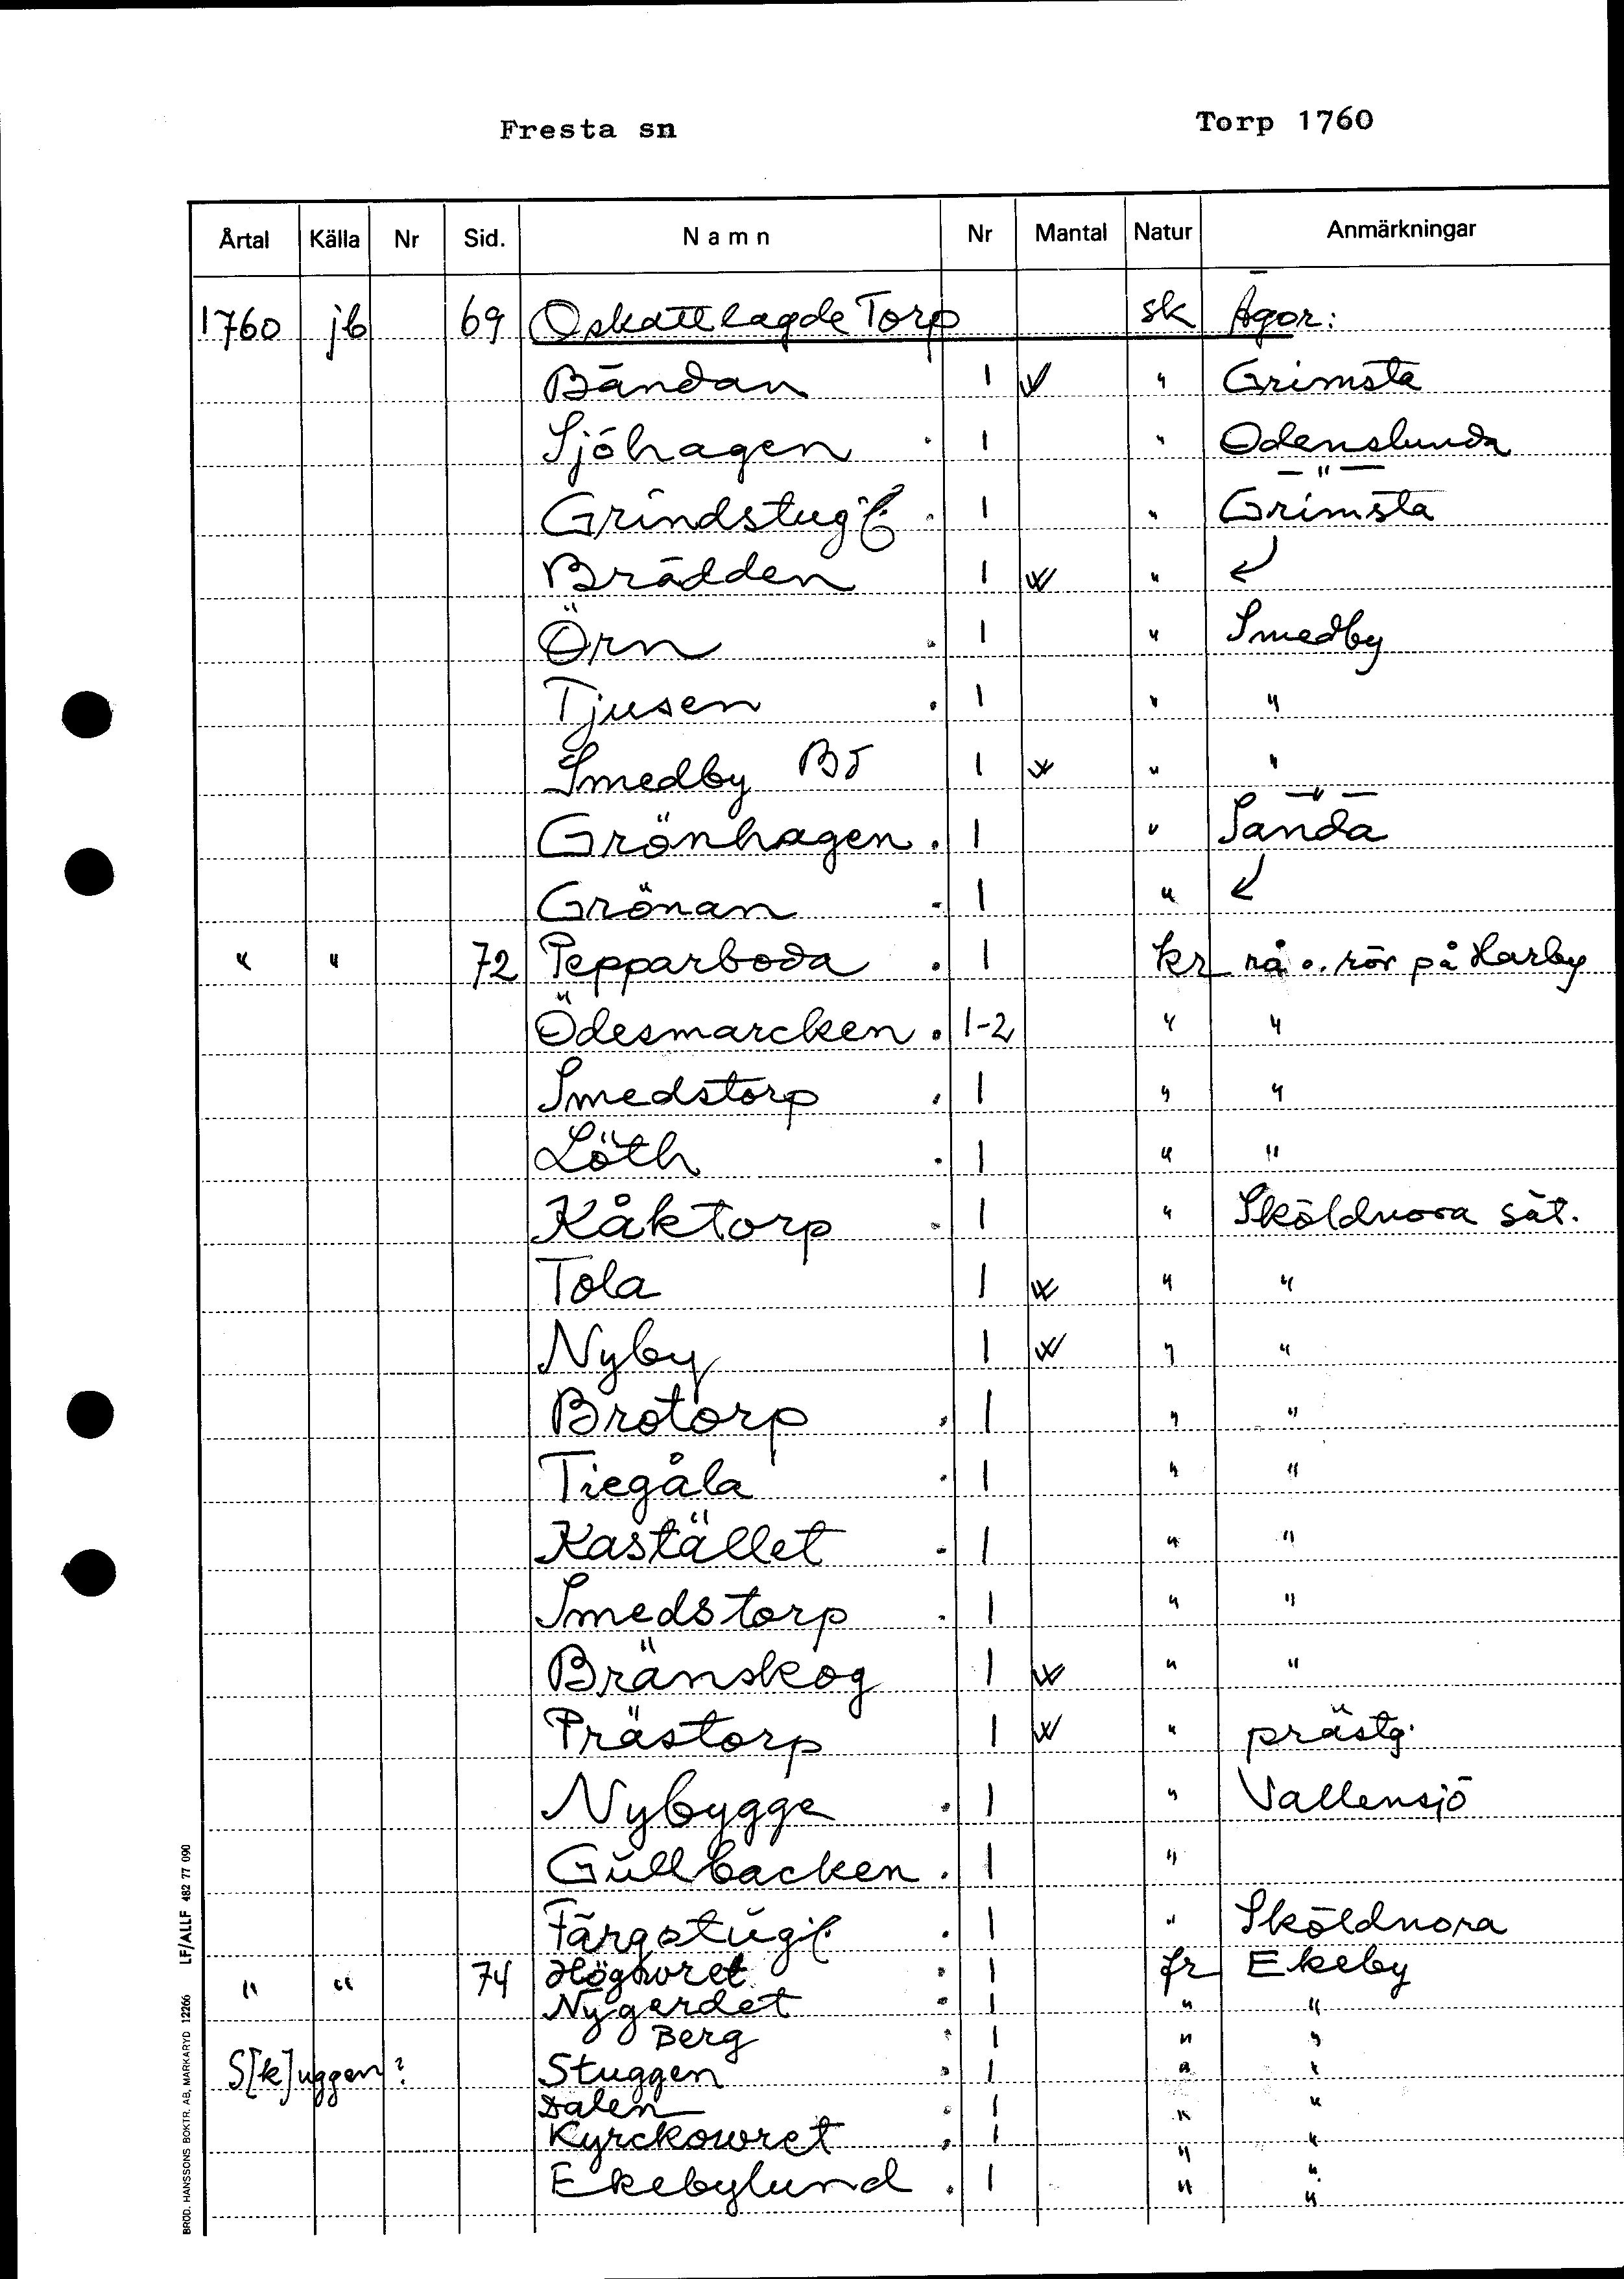 Fresta sn Torp 1760
Årtal Källa Nr Sid. Namn Nr Mantal Natur Anmärkningar
1760 jb 69 Oskattlagde Torp sk Ägor:
Bändan 1 W " Grimsta
Sjöhagen . 1 " Odenslunda
— " —
Grindstug . 1 " Grimsta
Brädden 1 W " ↙
Örn . 1 " Smedby
Tjusen . 1 " "
Smedby Bs 1 W " "
— " —
Grönhagen . 1 " Sanda
Grönan . 1 " ↙
" " 72 Pepparboda . 1 kr rå o. rör på Harby
Ödesmarcken . 1-2 " "
Smedstorp . 1 " "
Löth . 1 " "
Kåktorp . 1 " Sköldnora sät.
Tola 1 W " "
Nyby 1 W " "
Brotorp . 1 " "
Tiegåla . 1 " "
Kastället . 1 " "
Smedstorp . 1 " "
Bränskog 1 W " "
Prästorp 1 W " prästg.
Nybygge . 1 " Vallensjö
Gullbacken . 1 "
Färgstug . 1 " Sköldnora
" " 74 . 1 fr Ekeby
Nygerdet . 1 " "
Berg . 1 " "
S[k]uggen? Stuggen . 1 " "
Dalen . 1 " "
Kyrckowret . 1 " "
Ekebylund . 1 " "
"
BROD. HANSSONS BOKTR. AB, MARKARYD 12266 LF/ALLF 482 77 090